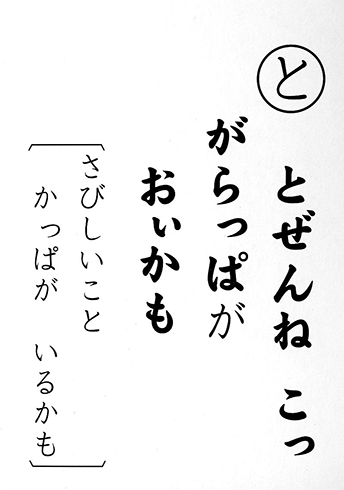 と
とぜんね こっ
がらっぱが
おぃかも
さびしいこと
かっぱが いるかも